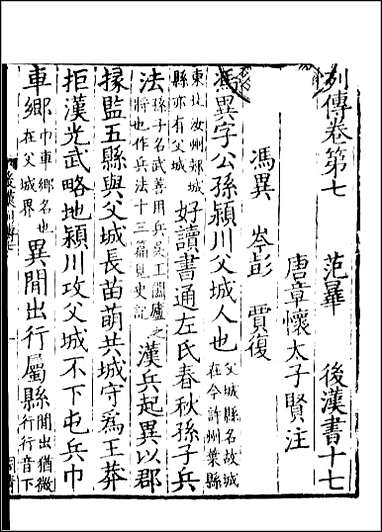 列傳卷第七 范曄 後漢書十七
唐章懷太子賢注
馮異 岑彭 賈復
馮異字公孫潁川父城人也父城縣名故城在今許州葉縣
東北汝州郟城縣亦有父城好讀書通左氏春秋孫子兵
法孫子名武善用兵吳王闔廬之將也作兵法十三篇見史記漢兵起異以郡
掾監五縣與父城長苗萌共城守爲王莽
拒漢光武略地潁川攻父城不下屯兵巾
車鄉巾車鄉名也在父城界異閒出行屬縣閒出猶微行行音下